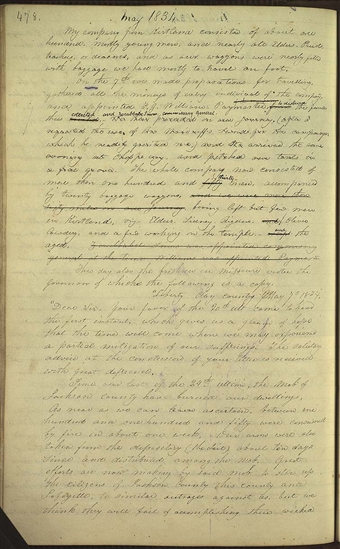 478.
May 1834
My company from Kirtland consisted of about one
hundred mostly young men, and nearly all Elders, Priests
teachers, or deacons, and as our waggons were nearly filled
with baggage we had mostly to travel on foot.
On the 7th we made preparations for travelling,
gathered all the monies of every individual of the company
and appointed F. G. Williams Paymaster,
and
proceeded on our journey. (after I
of one Sheriff for the company
which he readily me,) and we arrived the same
evening at Chippeway, and pitched our tents in
a pine grove. The whole company now consisted of
more than one hundred and thirty men, accompanied
by twenty baggage waggons.
having left but few men
in Kirtland, viz. Elder Sidney Rigdon, Oliver
Cowdery, and a few working on the temple, and the
aged.
This day also the presidency in Missouri wrote the
following of which the following is a copy.
Liberty Clay county May 7th 1834.
"Dear Sir, Your favor of the 20th ult. came to hand
the first instant, which gives us a gleam of hope
that the time will come when we may experience
a partial mitigation of our sufferings. The salutary
advice at the conclusion of your letter is received
with great deference.
Since our last of the 24th ultimo, the mob of
Jackson county have burned our dwellings;
as near as we can learn ascertain, between one
hundred and one hundred and fifty were consumed
by fire in about one week. Our arms were also
taken from the depository (the jail) about ten days
since and distributed among the mob. Great
efforts are now making by said mob to stir up
the citizens of Jackson county this county and
Lafayette, to similar outrages against us, but we
think they will fail of accomplishing their wicked